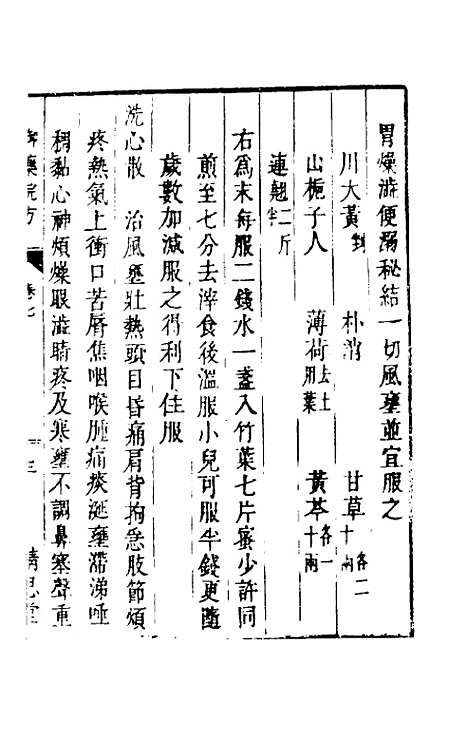 胃燥澁便溺秘結一切風壅並宜服之
川大黃剉 朴消 甘草各二十兩
山梔子人 薄荷去土用葉 黃芩各一十兩
連翹二斤半
右爲末每服二錢水一盞入竹葉七片蜜少許同
煎至七分去滓食後溫服小兒可服半錢更隨
歲數加減服之得利下住服
洗心散 治風壅壯熱頭目昏痛肩背拘急肢節煩
疼熱氣上衝口苦唇焦咽喉腫痛痰涎壅滯涕唾
稠黏心神煩燥眼澁睛疼及寒壅不調鼻塞聲重
藥院方 卷七 三 精思堂